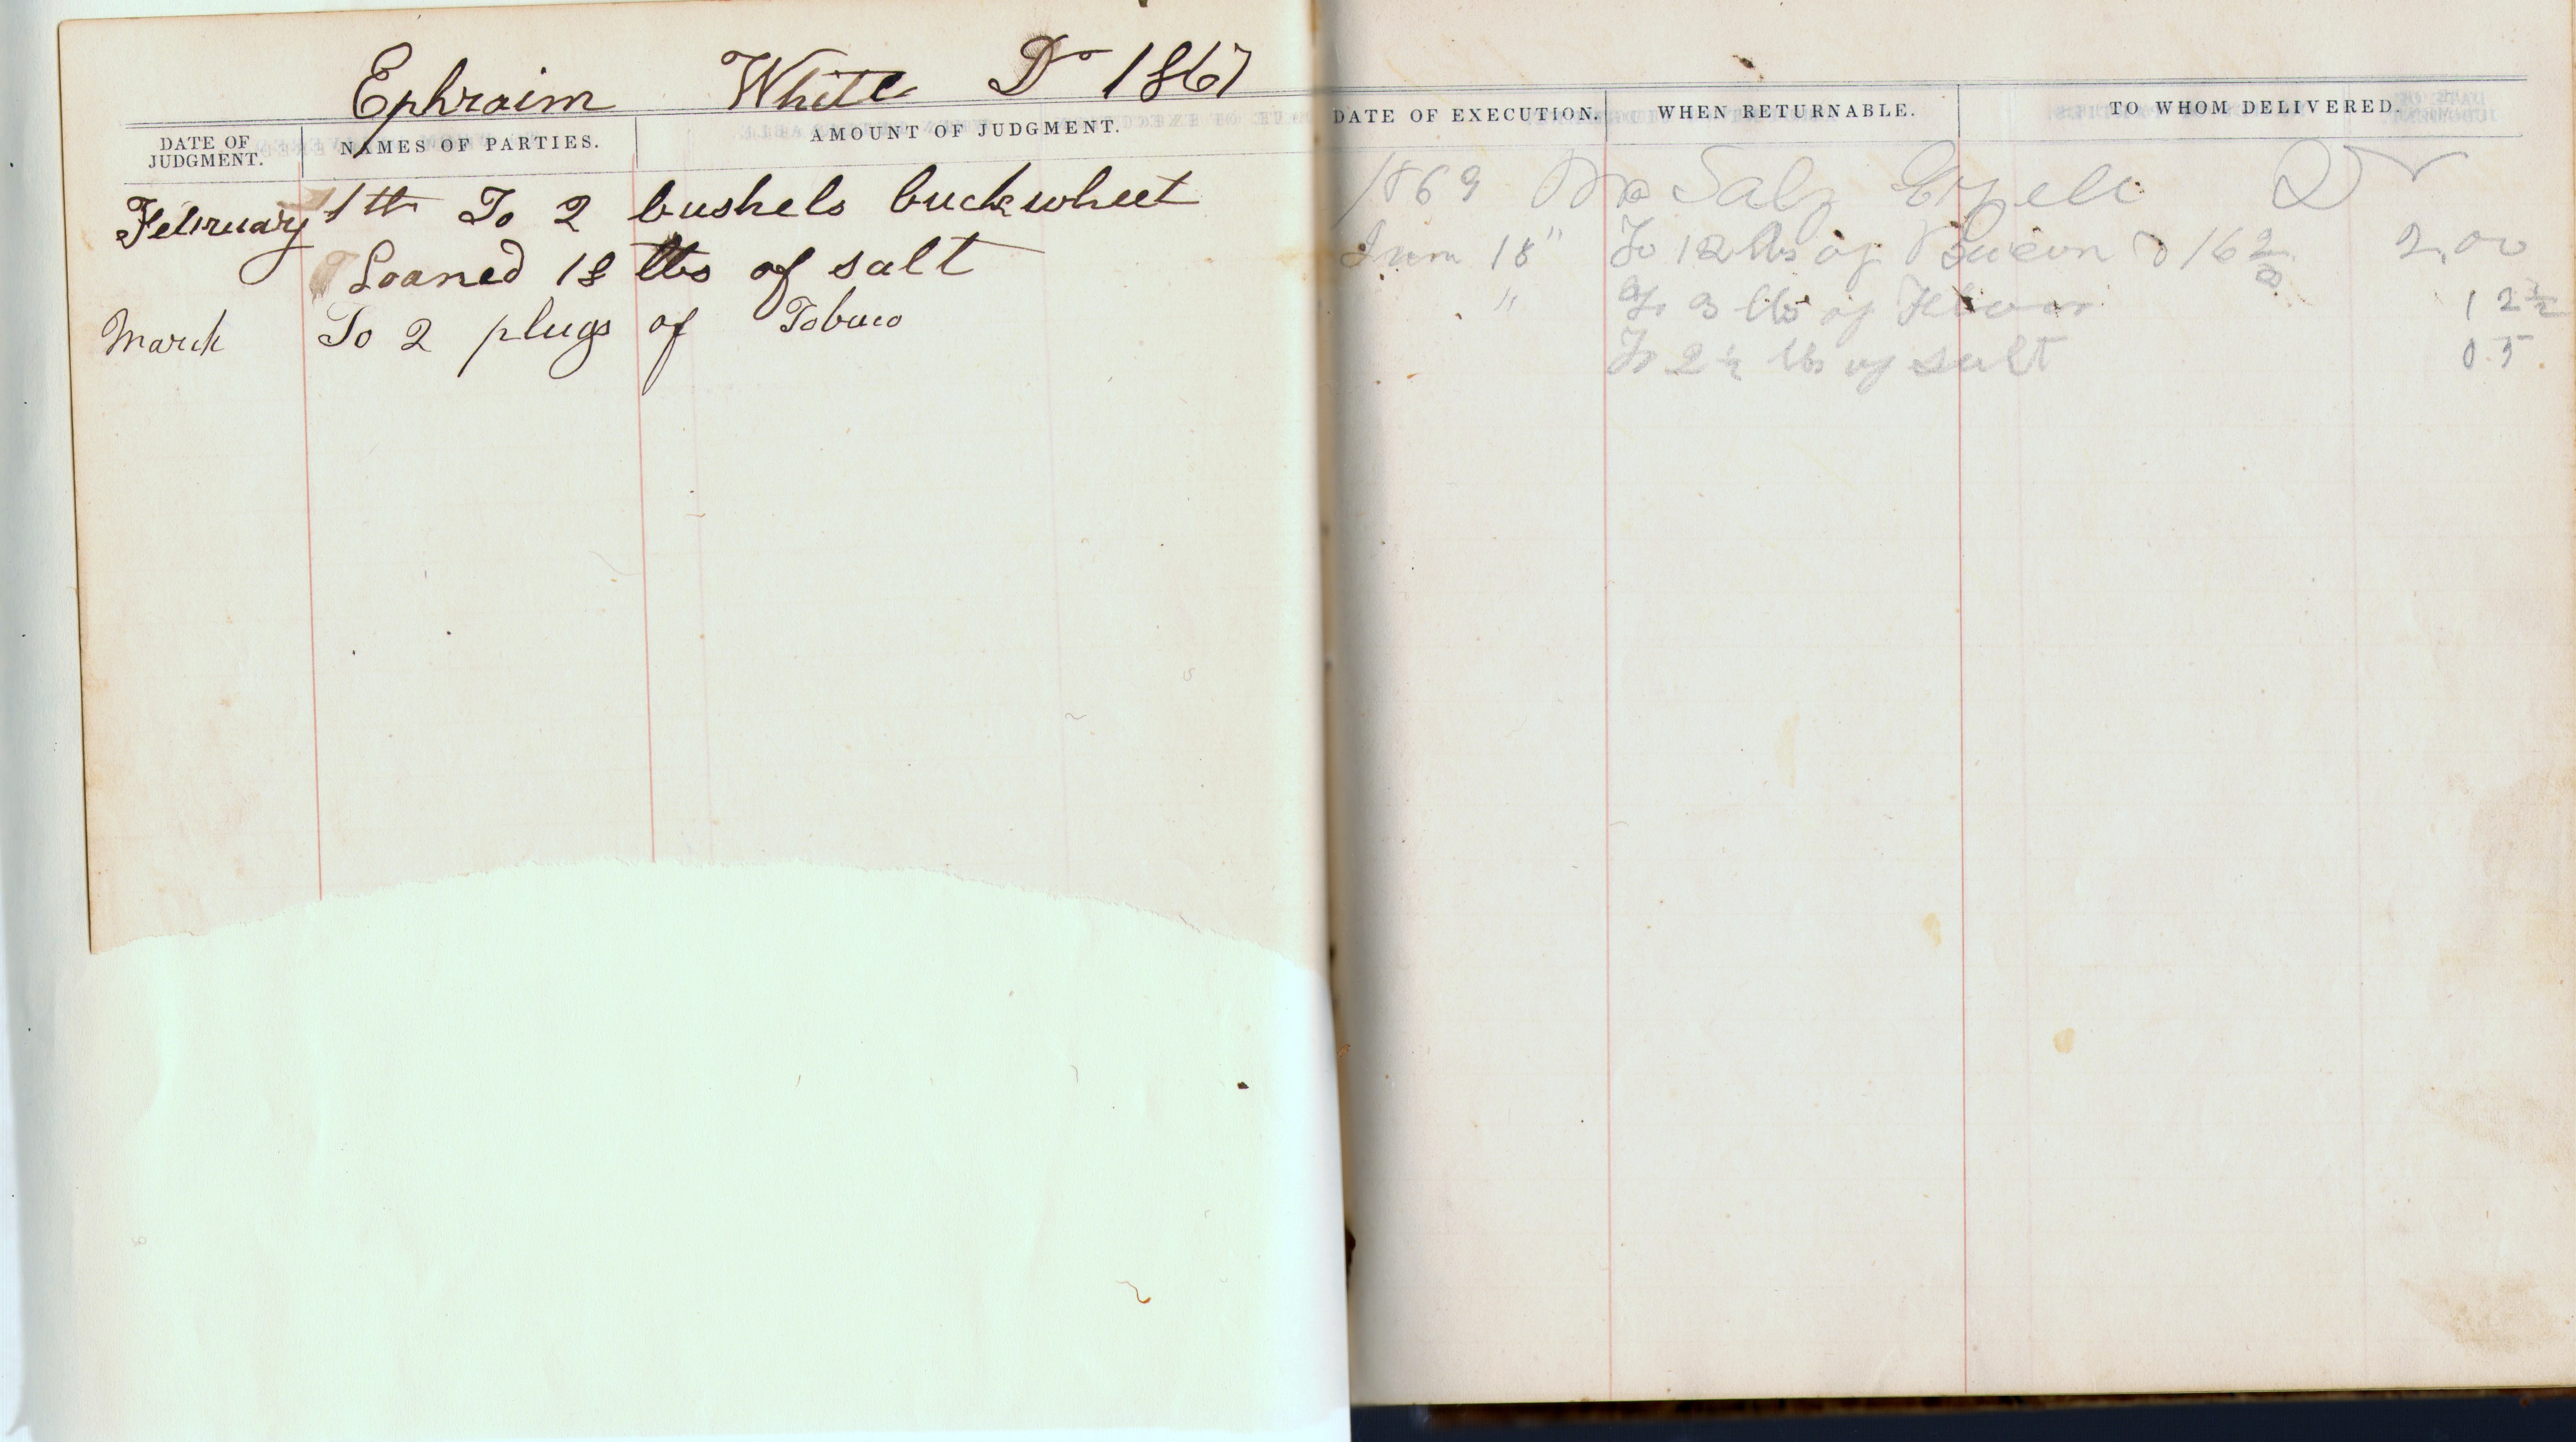 Ephraim White Dr 1867
DATE OF JUDGMENT.
NAMES OF PARTIES.
AMOUNT OF JUDGMENT.
February 1th To 2 bushels buckwheet
Loaned 18 lbs of salt
March To 2 plugs of Tobaco
DATE OF EXECUTION.
WHEN RETURNABLE.
TO WHOM DELIVERED.
1869 Ezell Dr
18" To 12 lbs of Bacon 16 2/3 2.00
" To 3 lbs of 12 1/2
To 2 1/2 lbs of salt 05